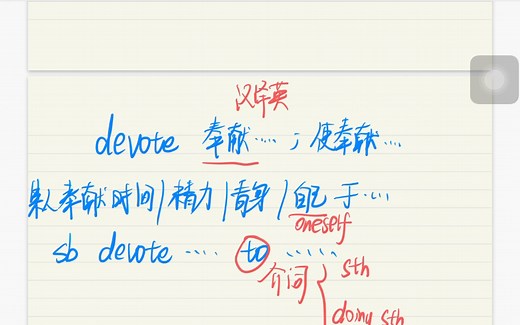 汉译英
devote 奉献…；使奉献…
某人奉献时间/精力/青春/自己 于…
oneself
sb devote …… to ……
介词 { sth
doing sth